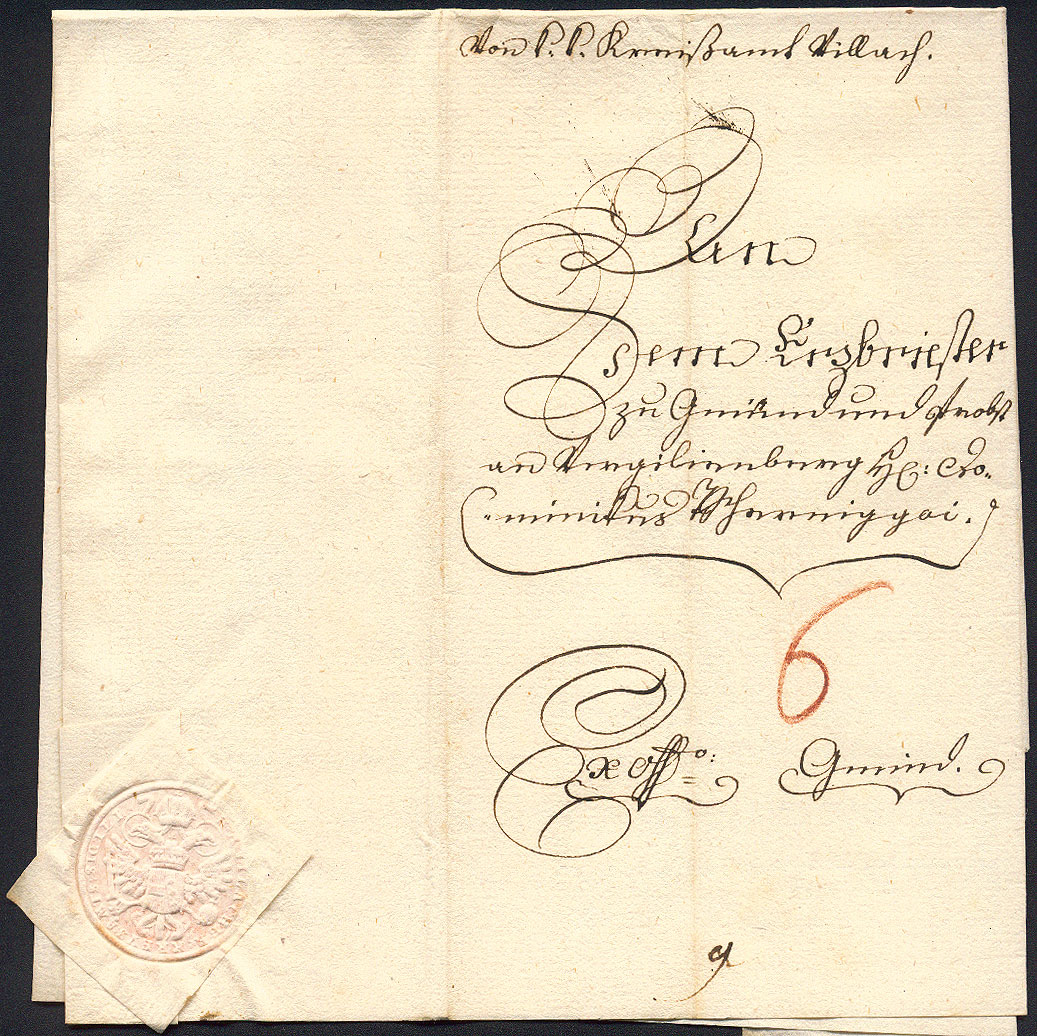 Von k. k. Kreisßamt Villach.
An
Herrn Erzbriester
zu Gmünd und Probst
an Virgilienberg H: Do-
minikus Tscherniggoi.
6
Ex offo:
Gmünd.